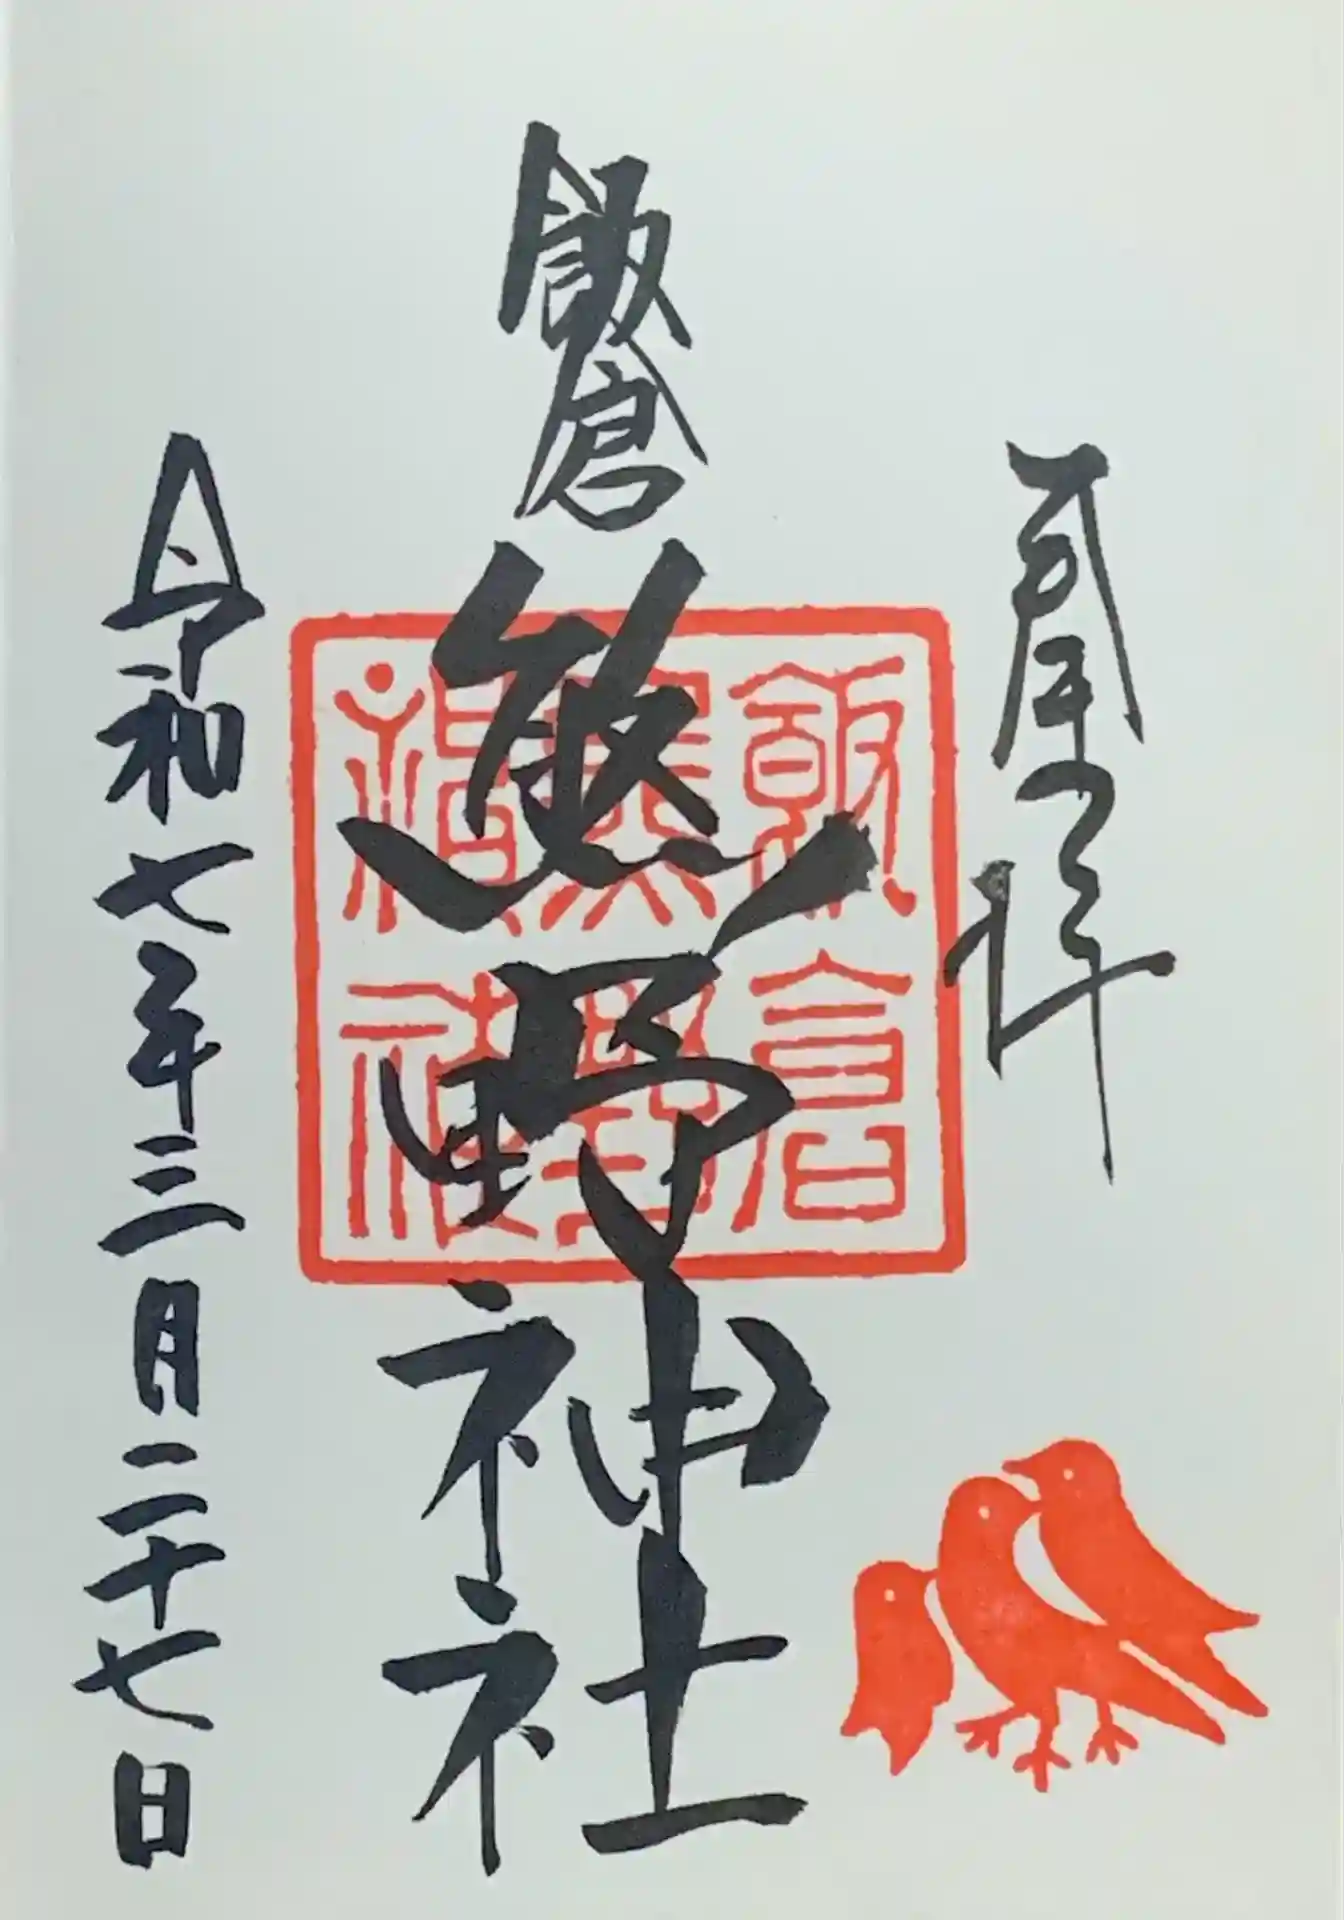 奉拝
飯倉
熊野神社
飯倉
熊野
神社
令和七年三月二十七日